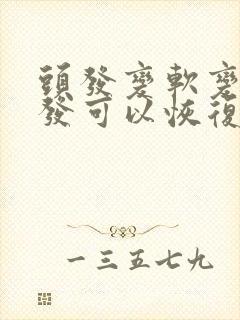 頭發變軟變
發可以恢復
一三五七九